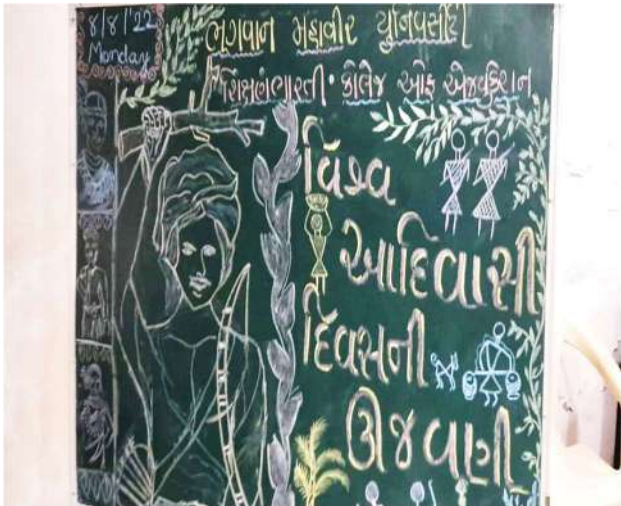 8/8/'22
Monday
ભગવાન મહાવીર યુનિવર્સીટી
શિક્ષણભારતી કૉલેજ ઓફ એજ્યુકેશન
વિશ્વ
આદિવાસી
દિવસની
ઊજવણી